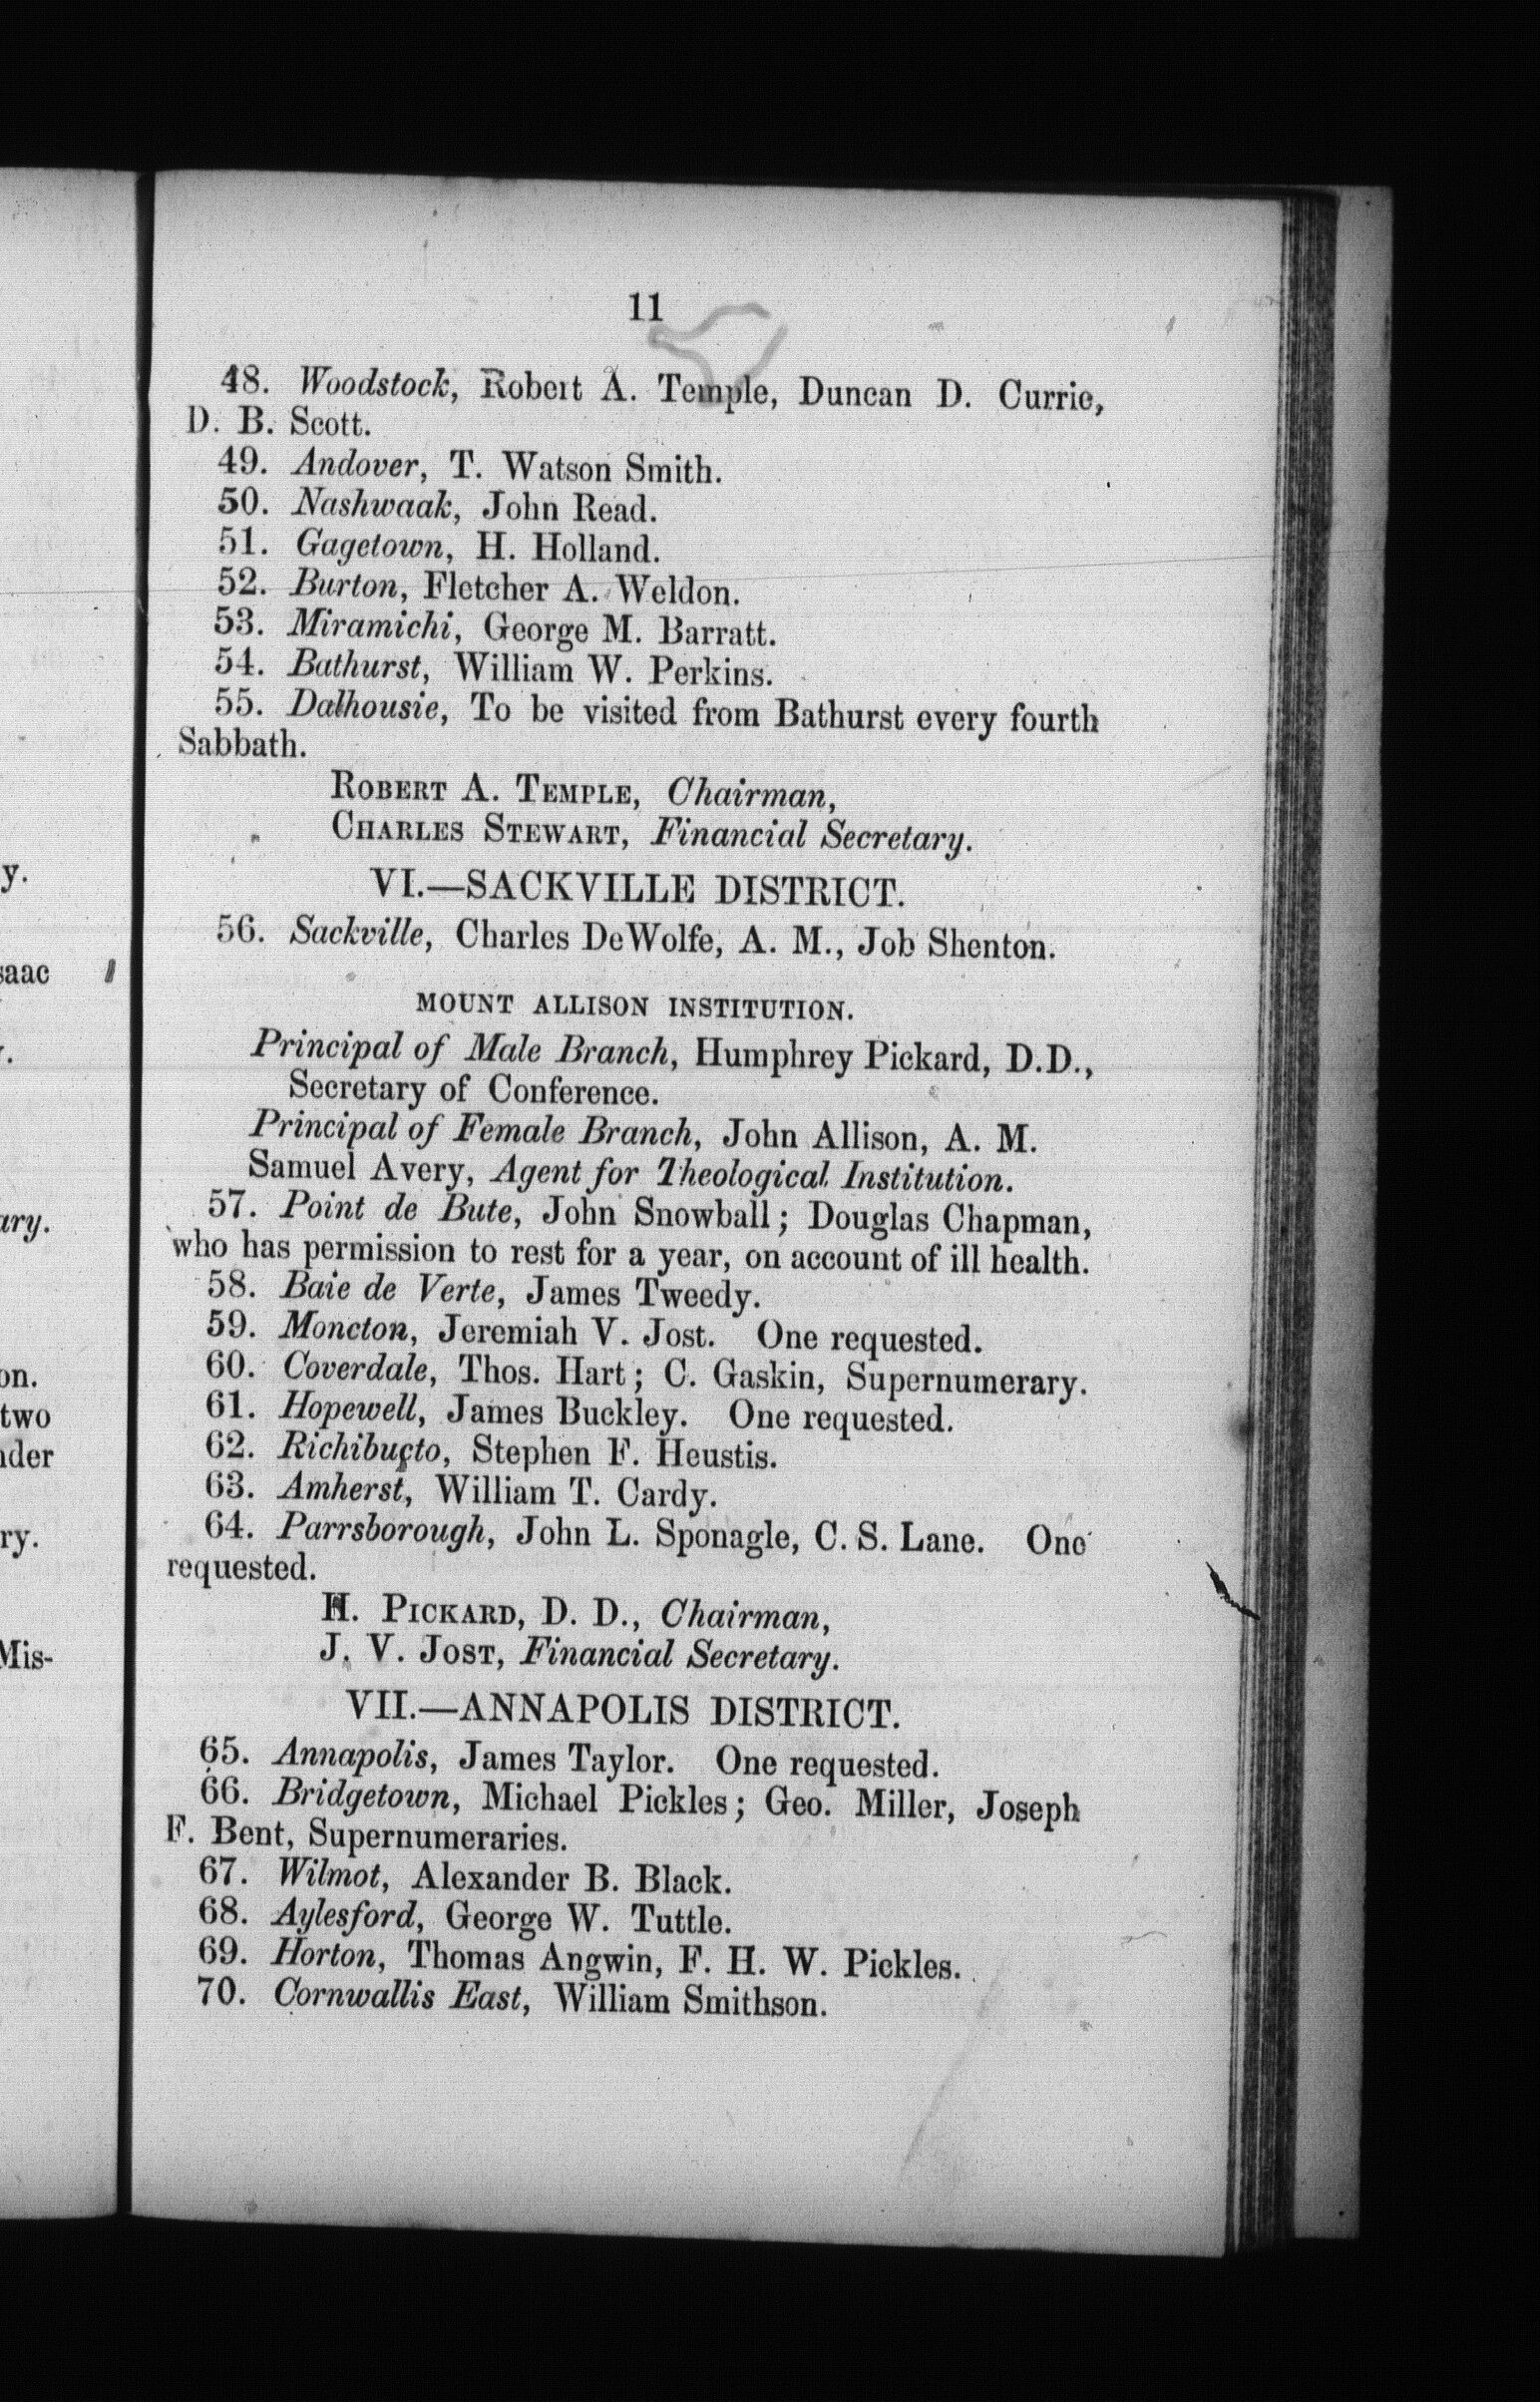 11
48. Woodstock, Robert A. Temple, Duncan D. Currie,
D. B. Scott.
49. Andover, T. Watson Smith.
50. Nashwaak, John Read.
51. Gagetown, H. Holland.
52. Burton, Fletcher A. Weldon.
53. Miramichi, George M. Barratt.
54. Bathurst, William W. Perkins.
55. Dalhousie, To be visited from Bathurst every fourth
Sabbath.
ROBERT A. TEMPLE, Chairman,
CHARLES STEWART, Financial Secretary.
VI.—SACKVILLE DISTRICT.
56. Sackville, Charles DeWolfe, A. M., Job Shenton.
MOUNT ALLISON INSTITUTION.
Principal of Male Branch, Humphrey Pickard, D.D.,
Secretary of Conference.
Principal of Female Branch, John Allison, A. M.
Samuel Avery, Agent for Theological Institution.
57. Point de Bute, John Snowball; Douglas Chapman,
who has permission to rest for a year, on account of ill health.
58. Baie de Verte, James Tweedy.
59. Moncton, Jeremiah V. Jost. One requested.
60. Coverdale, Thos. Hart; C. Gaskin, Supernumerary.
61. Hopewell, James Buckley. One requested.
62. Richibucto, Stephen F. Heustis.
63. Amherst, William T. Cardy.
64. Parrsborough, John L. Sponagle, C. S. Lane. One
requested.
H. PICKARD, D. D., Chairman,
J. V. JOST, Financial Secretary.
VII.—ANNAPOLIS DISTRICT.
65. Annapolis, James Taylor. One requested.
66. Bridgetown, Michael Pickles; Geo. Miller, Joseph
F. Bent, Supernumeraries.
67. Wilmot, Alexander B. Black.
68. Aylesford, George W. Tuttle.
69. Horton, Thomas Angwin, F. H. W. Pickles.
70. Cornwallis East, William Smithson.